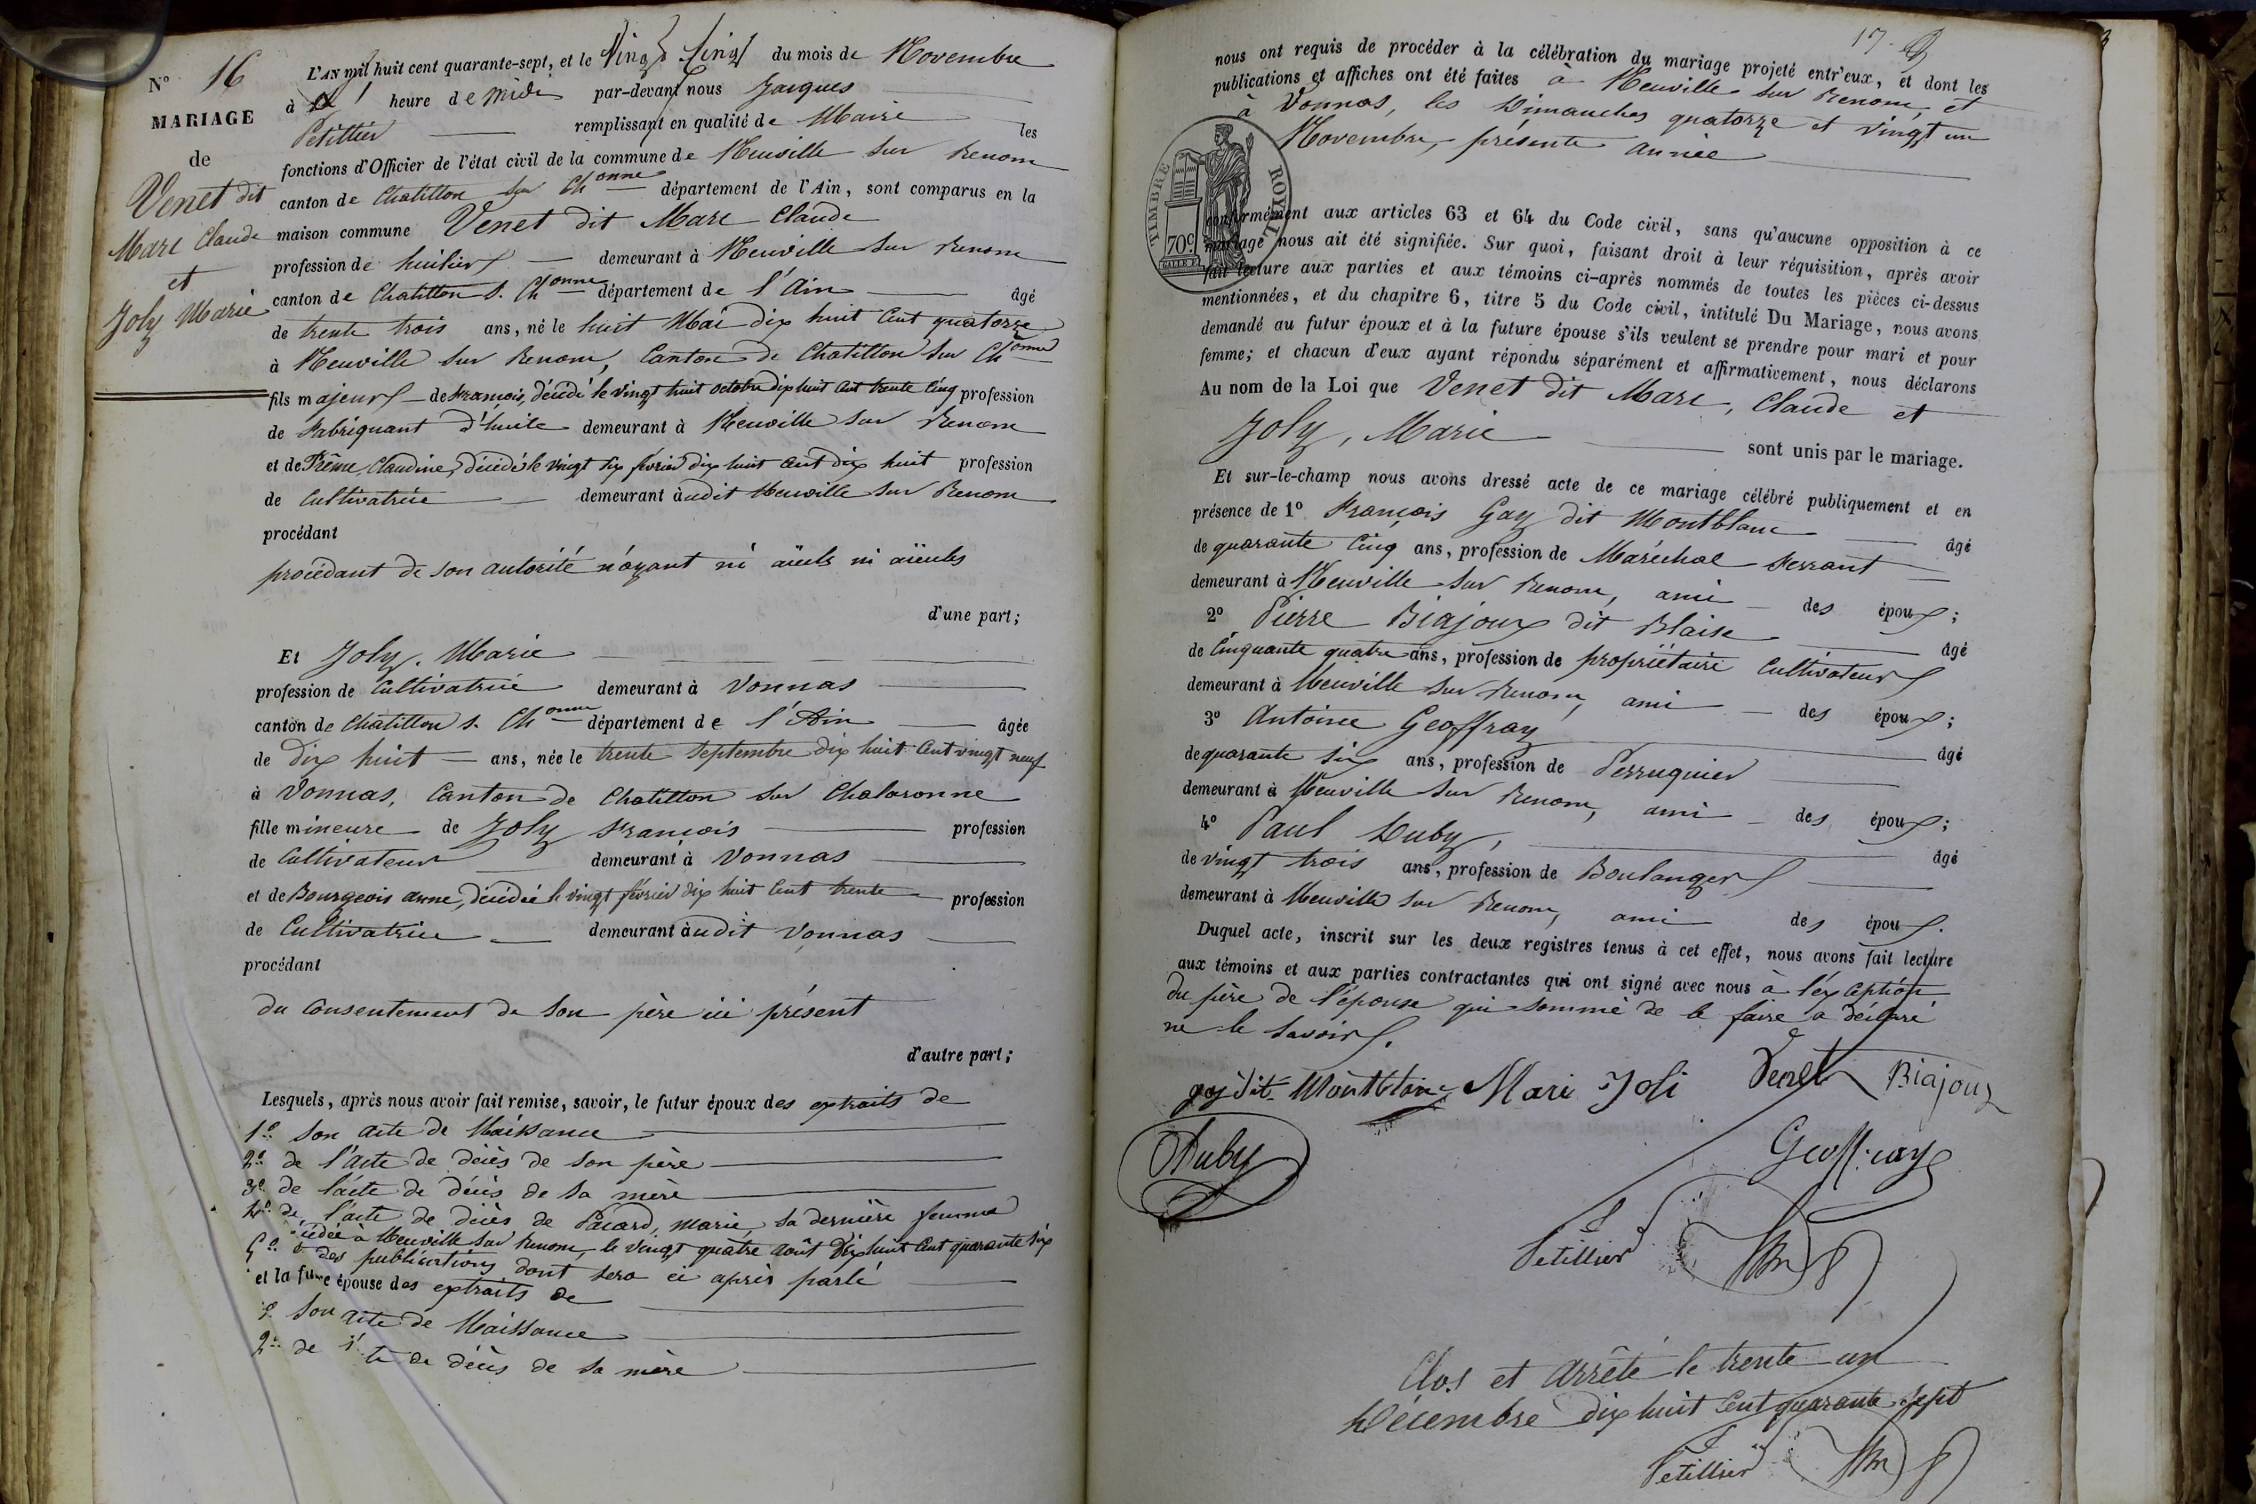 N° 16
MARIAGE
de
Venet dit
Marc Claude
et
Joly Marie
L'AN mil huit cent quarante-sept, et le Vingt Cinq du mois de Novembre
à heure de midi par-devant nous Jacques
Petillier remplissant en qualité de Maire les
fonctions d'Officier de l'état civil de la commune de Neuville sur Renom
canton de Chatillon sur Chonne département de l'Ain, sont comparus en la
maison commune Venet dit Marc Claude
profession de huilier demeurant à Neuville sur Renom
canton de Chatillon s. Chonne département de l'Ain âgé
de trente trois ans, né le huit Mai dix huit Cent quatorze
à Neuville sur Renom, Canton de Chatillon sur Chonne
fils majeur de François, décédé le vingt huit octobre dix huit Cent trente Cinq profession
de Fabriquant d'huile demeurant à Neuville sur Renom
et de Claudine, décédé le vingt six février dix huit Cent dix huit profession
de Cultivatrice demeurant àudit Neuville sur Renom
procédant
procédant de son autorité n'ayant ni aïeuls ni aïeules
d'une part;
Et Joly. Marie
profession de Cultivatrice demeurant à Vonnas
canton de Chatillon s. Chonne département de l'Ain âgée
de dix huit ans, née le trente Septembre dix huit Cent vingt neuf
à Vonnas, Canton de Chatillon sur Chalaronne
fille mineure de Joly François profession
de Cultivateur demeurant à Vonnas
et de Bourgeois anne, décédée le vingt février dix huit Cent trente profession
de Cultivatrice demeurant àudit Vonnas
procédant
du Consentement de son père ici présent
d'autre part;
Lesquels, après nous avoir fait remise, savoir, le futur époux des extraits de
1° son acte de Naissance
2° de l'acte de décès de son père
3° de l'acte de décès de sa mère
4° de l'acte de décès de Pacard, Marie, sa dernière femme
décédée à Neuville sur Renom, le vingt quatre août Dix huit Cent quarante six
5° des publications dont sera ci après parlé
et la future épouse des extraits de
1° Son acte de Naissance
2° de l'acte de décès de sa mère
17
nous ont requis de procéder à la célébration du mariage projeté entr'eux, et dont les
publications et affiches ont été faites à Neuville sur Renom, et
à Vonnas, les Dimanches quatorze et vingt un
Novembre, présente année
TIMBRE ROYAL
70c
conformément aux articles 63 et 64 du Code civil, sans qu'aucune opposition à ce
mariage nous ait été signifiée. Sur quoi, faisant droit à leur réquisition, après avoir
fait lecture aux parties et aux témoins ci-après nommés de toutes les pièces ci-dessus
mentionnées, et du chapitre 6, titre 5 du Code civil, intitulé Du Mariage, nous avons
demandé au futur époux et à la future épouse s'ils veulent se prendre pour mari et pour
femme; et chacun d'eux ayant répondu séparément et affirmativement, nous déclarons
Au nom de la Loi que Venet dit Marc, Claude et
Joly, Marie sont unis par le mariage.
Et sur-le-champ nous avons dressé acte de ce mariage célébré publiquement et en
présence de 1° François Gay dit Montblanc âgé
de quarante Cinq ans, profession de Maréchal ferrant
demeurant à Neuville sur Renom, ami des époux;
2° Pierre Biajoux dit Blaise âgé
de Cinquante quatre ans, profession de propriétaire Cultivateur
demeurant à Neuville sur Renom, ami des époux;
3° Antoine Geoffray âgé
de quarante six ans, profession de Perruquier
demeurant à Neuville sur Renom, ami des époux;
4° Paul Duby, âgé
de vingt trois ans, profession de Boulanger
demeurant à Neuville sur Renom, ami des époux.
Duquel acte, inscrit sur les deux registres tenus à cet effet, nous avons fait lecture
aux témoins et aux parties contractantes qui ont signé avec nous à l'exception
du père de l'épouse qui sommé de le faire a déclaré
ne le savoir.
gay dit Montblanc Mari Joli Venet Biajoux
Duby Geoffray
Petillier
Clos et Arrêté le trente un
Décembre dix huit Cent quarante Sept
Petillier